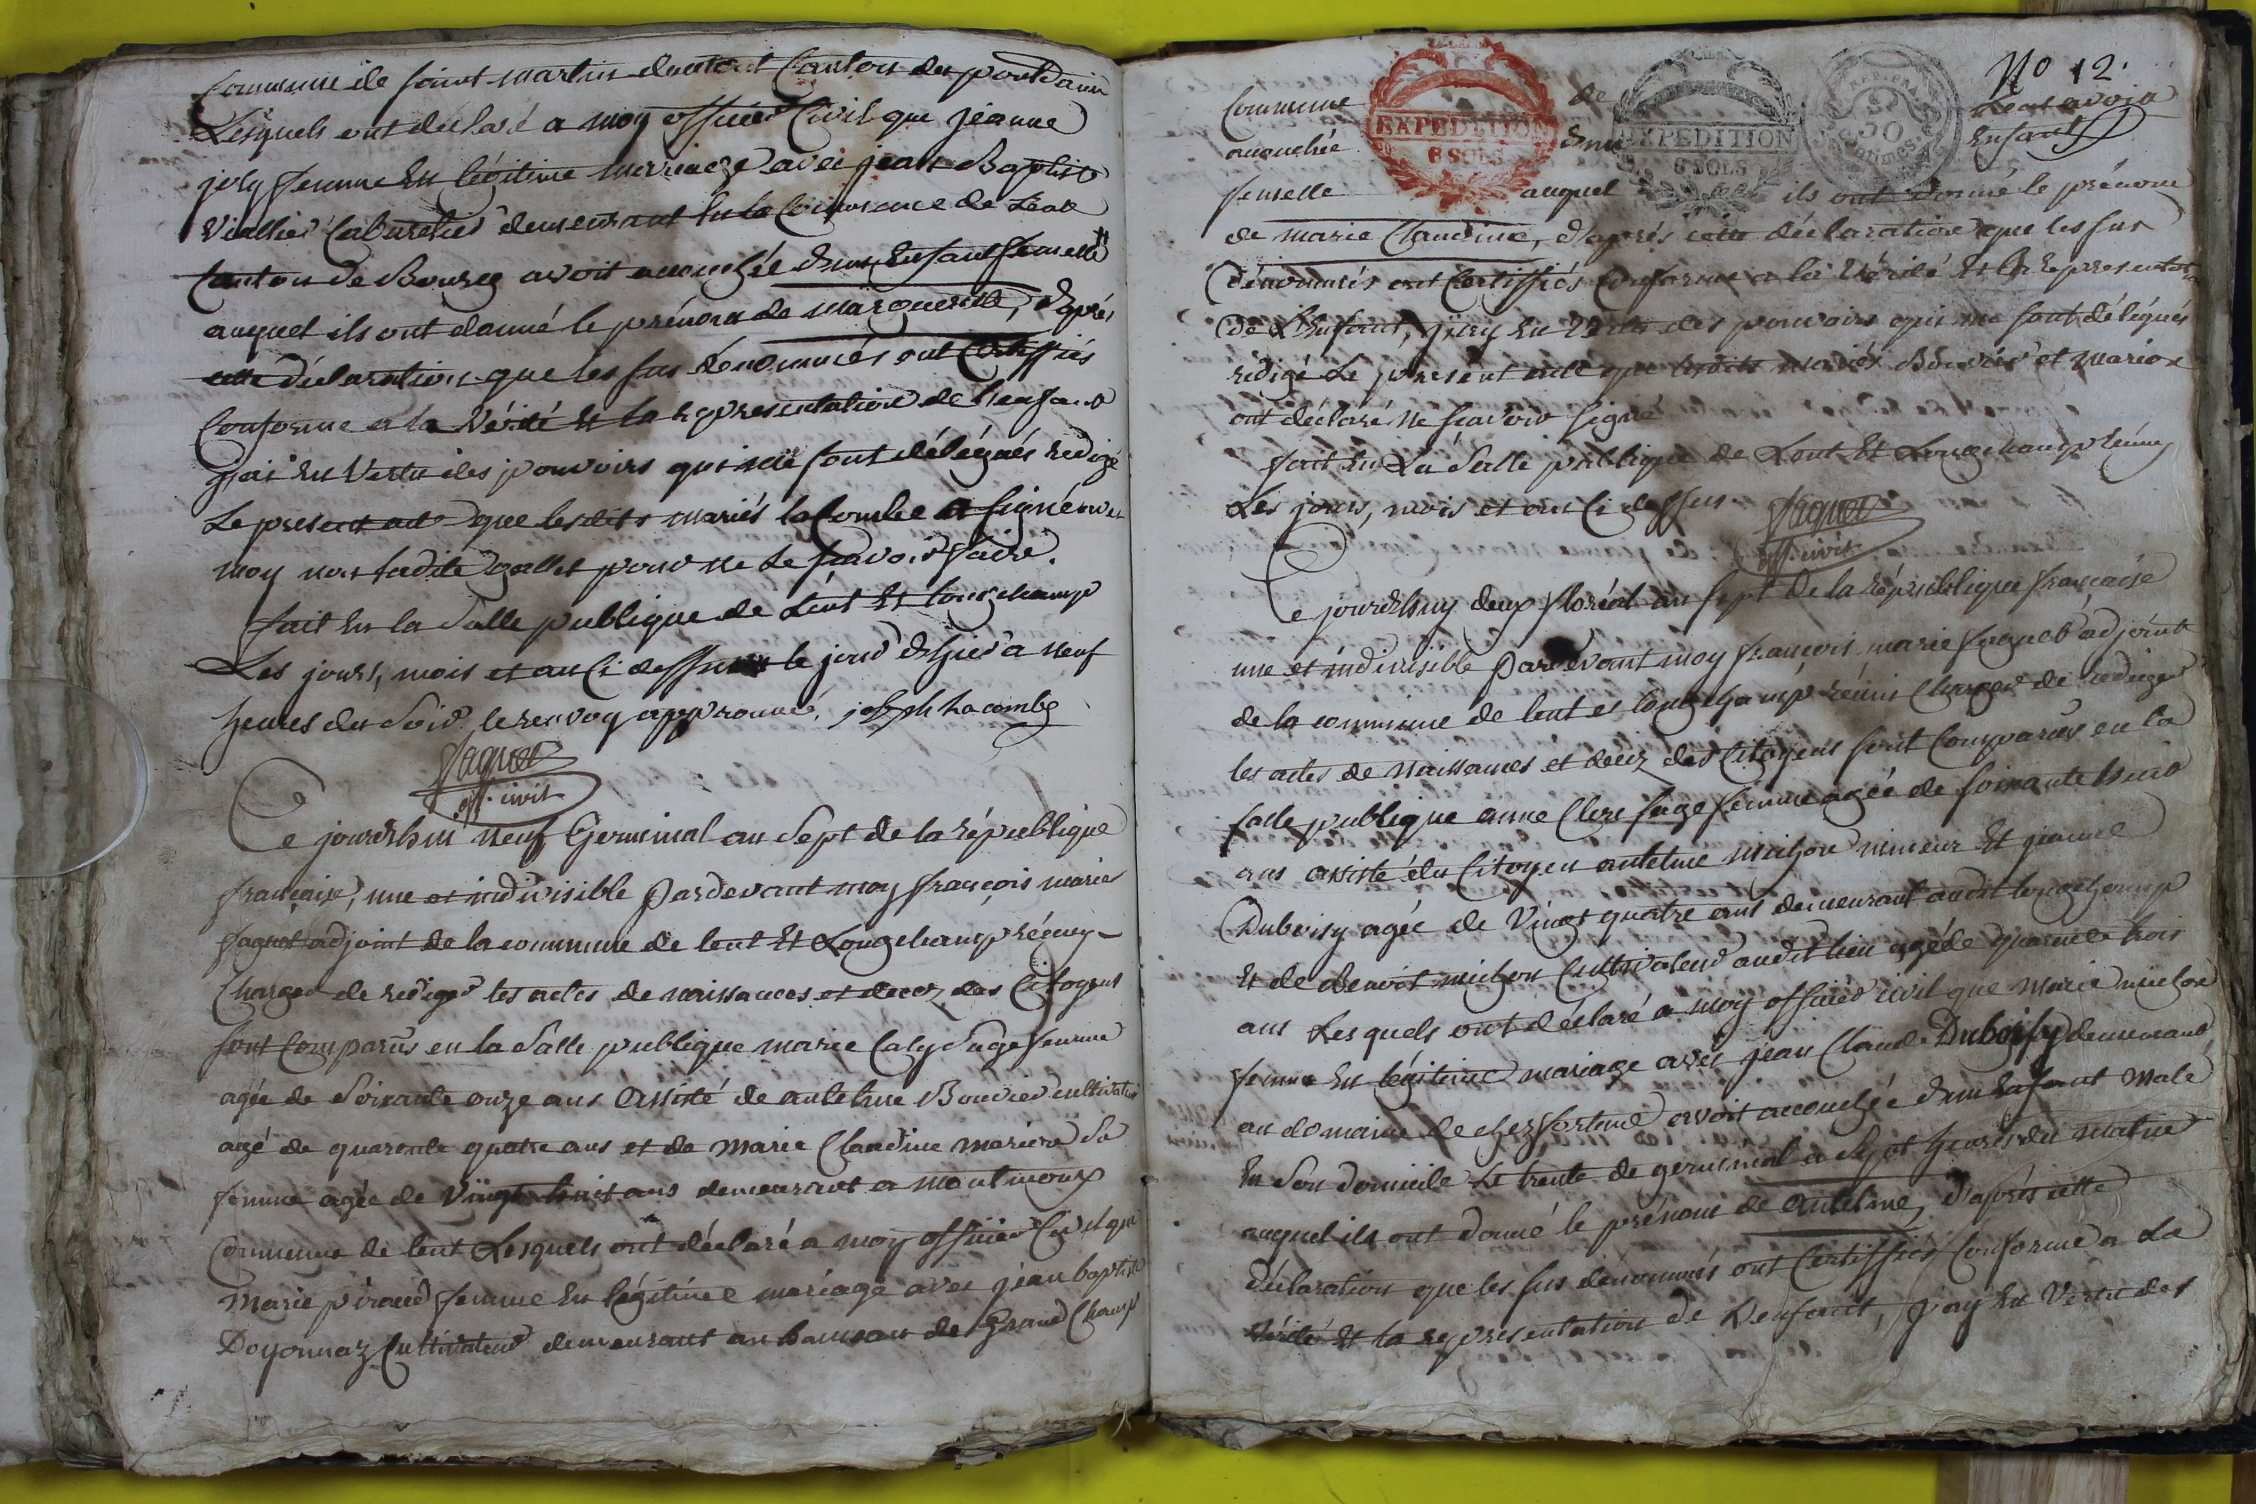 Commune de saint martin dumont Canton du pontdain
Lesquels ont déclaré a moy officier Civil que jeanne
joly femme En légitime mariage avec jean Baptiste
Viallier Cabaretier demeurant En la Commune de Lent
Canton de Bourg avoit accouchée d'un Enfant femelle #
auquel ils ont donné le prénom de Marguerite, d'après
cette déclaration que les sus dénommés ont Certiffiés
Conforme a la Vérité Et la representation de lenfant
jai En Vertu des pouvoirs qui me sont délégués redigé
Le present acte que lesdits mariés laCombe a signé avec
moy non ladite gallet pour ne le sçavoir faire.
fait En la Salle publique de Lent Et longchamp
Les jours, mois et an Ci dessus # le jour d'hier a neuf
heures du Soir le renvoy approuvé, joseph Lacombe
Jaquet
off. civil
Ce jourdhui neuf Germinal an Sept de la république
française, une et indivisible Pardevant moy françois marie
Jaquet adjoint de la commune de lent Et Longchamp réuny
Chargé de rediger les actes de naissances et decez des Citoyens
sont Comparus en la Salle publique marie Caly Sage femme
agée de Soixante onze ans assisté de antelme Bouvier cultivateur
agé de quarente quatre ans et de marie Claudine mariere Sa
femme agée de Vingt huit ans demeurant a montmoux
Commune de lent Lesquels ont déclaré a moy officier Civil que
Marie piroud femme En légitime mariage avec jean baptiste
Doyonnaz Cultivateur demeurant au hameau de Grand Champ
No 12.
Commune de Lent avoir
EXPEDITION
6 SOLS
EXPEDITION
6 SOLS
accouchée d'un Enfant
femelle auquel ils ont donné le prénom
de marie Claudine, d'après cette déclaration que les sus
dénommés ont Certiffiés Conforme a la Vérité Et la representation
de L'Enfant, j'ay En Vertu des pouvoirs qui me sont délégués
rédigé Le present acte que lesdits mariés Bouvier et mariere
ont déclaré ne sçavoir signé
fait En La Salle publique de Lent Et Longchamp réuny
Les jours, mois et an Ci dessus
Jaquet
off. civil
Ce jourdhuy deux floréal an sept de la république française
une et indivisible Pardevant moy françois marie Jaquet adjoint
de la commune de lent et longchamp réunis Chargé de rediger
les actes de naissances et decez des Citoyens sont Comparus en la
salle publique anne Clerc sage femme agée de soixante huit
ans assisté du Citoyen antelme michon mineur Et jeanne
Duboisy agée de Vingt quatre ans demeurant audit longchamp
Et de Benoit michon Cultivateur audit lieu agé de quarente trois
ans Lesquels ont déclaré a moy officier civil que Marie michon
femme En légitime mariage avec jean Claude Duboisy demeurant
au domaine de chez fortune avoit accouchée d'un Enfant male
En Son domicile Le trente de germinal a Sept heures du matin
auquel ils ont donné le prénom de antelme, d'après cette
déclaration que les sus dénommés ont Certiffiés Conforme a La
Vérité Et la representation de L'enfant, j'ay En Vertu des